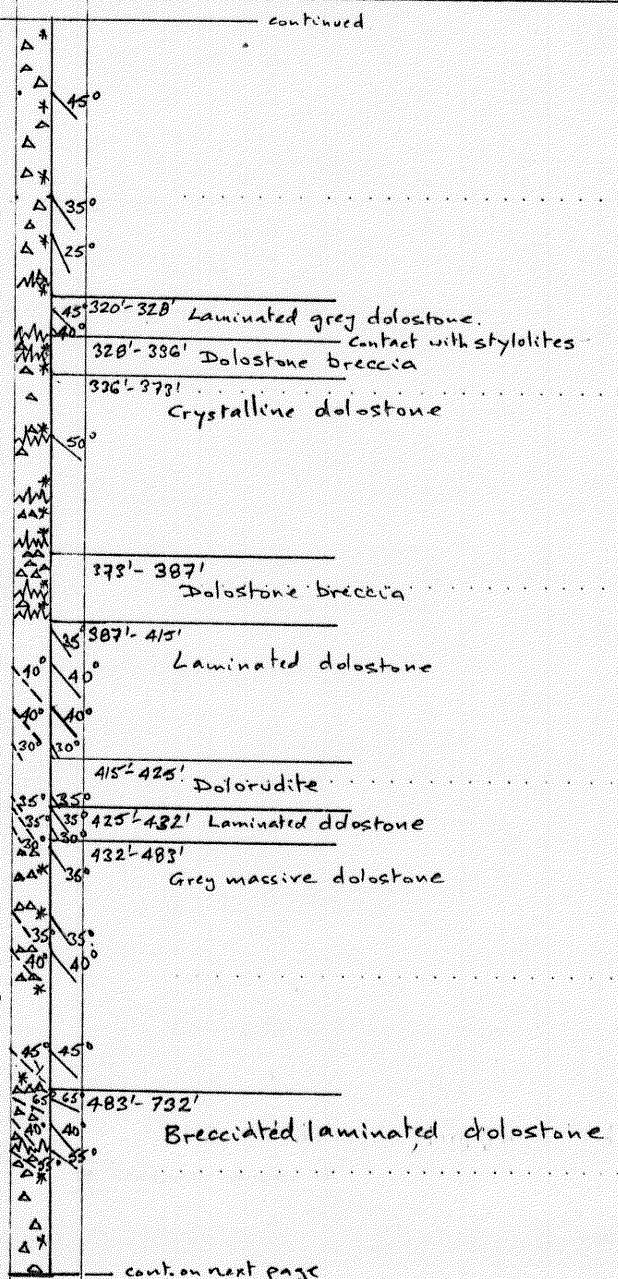 continued
45°
35°
25°
45° 320'-328' Laminated grey dolostone.
40°
Contact with stylolites
328'-336' Dolostone breccia
336'-373'
Crystalline dolostone
50°
373'-387'
Dolostone breccia
35° 387'-415'
Laminated dolostone
40° 40°
40° 40°
30° 30°
415'-425' Dolorudite
35° 35°
35° 35° 425'-432' Laminated dolostone
30° 30°
432'-483'
36°
Grey massive dolostone
35° 35°
40° 40°
45° 45°
65° 65° 483'-732'
40° 40°
Brecciated laminated dolostone
35° 35°
cont. on next page